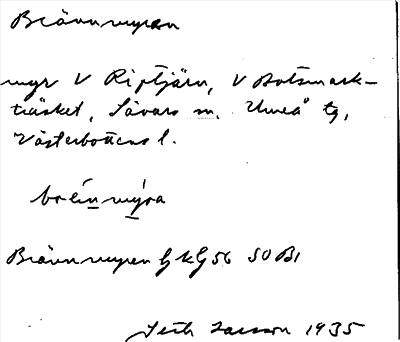 Brännmyren
myr V Riptjärn, V Botsmark-
träsket, Sävars sn, Umeå tg,
Västerbottens l.
Brännmyren GkG 56 SO B1
Larsson 1935